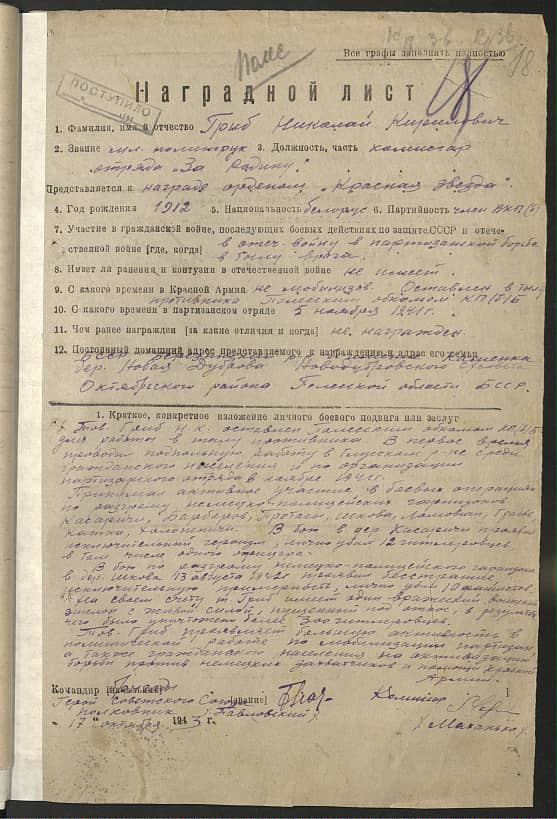 Полс
18
Все графы заполнять полностью
ПОСТУПИЛО
Наградной лист
1. Фамилия, имя и отчество Гриб Николай Кирилович
2. Звание мл. политрук 3. Должность, часть комиссар
отряда „За Родину"
Представляется к награде орденом „Красная звезда".
4. Год рождения 1912 5. Национальность белорус 6. Партийность член ВКП(б)
7. Участие в гражданской войне, последующих боевых действиях по защите СССР и отече-
ственной войне [где, когда] в отеч. войну в партизанской борьбе
в тылу врага.
8. Имеет ли ранения и контузии в отечественной войне не имеет.
9. С какого времени в Красной Армии не мобилизов. Оставлен в тылу
противника Полесским обкомом КП(б)Б
10. С какого времени в партизанском отряде 5 ноября 1941 г.
11. Чем ранее награжден [за какие отличия и когда] не награжден.
12. Постоянный домашний адрес представляемого к награждению и адрес его семьи
дер. Новая Дуброва Новодубровского с/совета
Октябрьского района Полесской области БССР.
1. Краткое, конкретное изложение личного боевого подвига или заслуг
Тов. Гриб Н.К. оставлен Полесским обкомом КП(б)Б
для работы в тылу противника. В первое время
проводил подпольную работу в Глусском р-не среди
гражданского населения и по организации
партизанского отряда в ноябре 1941 г.
Принимал активное участие в боевых операциях
по разгрому немецко-полицейских гарнизонов
Касаричи, Протасы, Шкава, Ломовичи,
Катка, Холопеничи. В бою в дер. Касаричи проявил
исключительный героизм, лично убил 12 гитлеровцев
в том числе одного офицера.
В бою по разгрому немецко-полицейского гарнизона
в дер. Шкова 13 августа 1942 г. проявил бесстрашие,
исключительную лично убил 10 фашистов.
На своем счету т. Гриб имеет один вражеский воинский
эшелон с живой силой, пущенный под откос, в результате
чего было уничтожено более 300 гитлеровцев.
Тов. Гриб проявляет большую активность в
политической работе по мобилизации партизан
а также гражданского населения на активизацию
борьбы против немецких захватчиков и помощи Красной
Армии.
Командир
Герой Советского Союза [звание] Комиссар
полковник /Павловский/
„17" октября 1943 г. /Маханько/